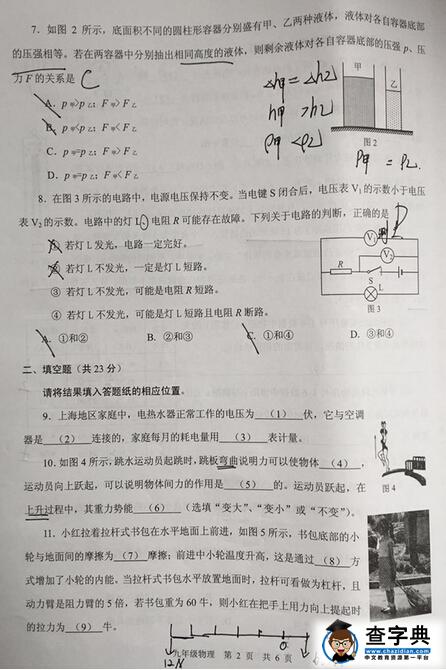 7. 如图 2 所示，底面积不同的圆柱形容器分别盛有甲、乙两种液体，液体对各自容器底部
的压强相等。若在两容器中分别抽出相同高度的液体，则剩余液体对各自容器底部的压强 p、压
力 F 的关系是 C
A. p甲>p乙；F甲>F乙
B. p甲<p乙；F甲<F乙
C. p甲=p乙；F甲>F乙
D. p甲=p乙；F甲<F乙
Δh甲 = Δh乙
h甲 >h乙
ρ甲 <ρ乙
P甲 = P乙
甲
乙
图 2
8. 在图 3 所示的电路中，电源电压保持不变。当电键 S 闭合后，电压表 V₁ 的示数小于电压
表 V₂ 的示数。电路中的灯 L、电阻 R 可能存在故障。下列关于电路的判断，正确的是 D
① 若灯 L 发光，电路一定完好。
② 若灯 L 不发光，一定是灯 L 短路。
③ 若灯 L 不发光，可能是电阻 R 短路。
④ 若灯 L 不发光，可能是灯 L 短路且电阻 R 断路。
V₁
V₂
R
S
L
图 3
A. ①和② B. ②和③ C. ①和④ D. ③和④
二、填空题（共 23 分）
请将结果填入答题纸的相应位置。
9. 上海地区家庭中，电热水器正常工作的电压为 （1） 伏，它与空调
器是 （2） 连接的，家庭每月的耗电量用 （3） 表计量。
10. 如图 4 所示，跳水运动员起跳时，跳板弯曲说明力可以使物体 （4） ，
运动员向上跃起，可以说明物体间力的作用是 （5） 的。运动员跃起，在
上升过程中，其重力势能 （6） （选填“变大”、“变小”或“不变”）。
图 4
11. 小红拉着拉杆式书包在水平地面上前进，如图 5 所示，书包底部的小
轮与地面间的摩擦为 （7） 摩擦；前进中小轮温度升高，这是通过 （8） 方
式增加了小轮的内能。当拉杆式书包水平放置地面时，拉杆可看做为杠杆，且
动力臂是阻力臂的 5 倍，若书包重为 60 牛，则小红在把手上用力向上提起时
的拉力为 （9） 牛。
12N
九年级物理 第 2 页 共 6 页
查字典
www.chazidian.com
中文教育资源第一平台